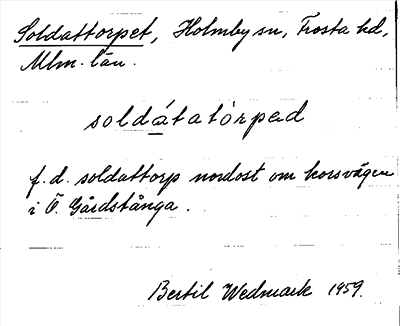 Soldattorpet, Holmby sn, Frosta hd,
Mlm. län.
soldátatòrpəd
f.d. soldattorp nordost om korsvägen
i Ö. Gårdstånga.
Bertil Wedmark 1959.